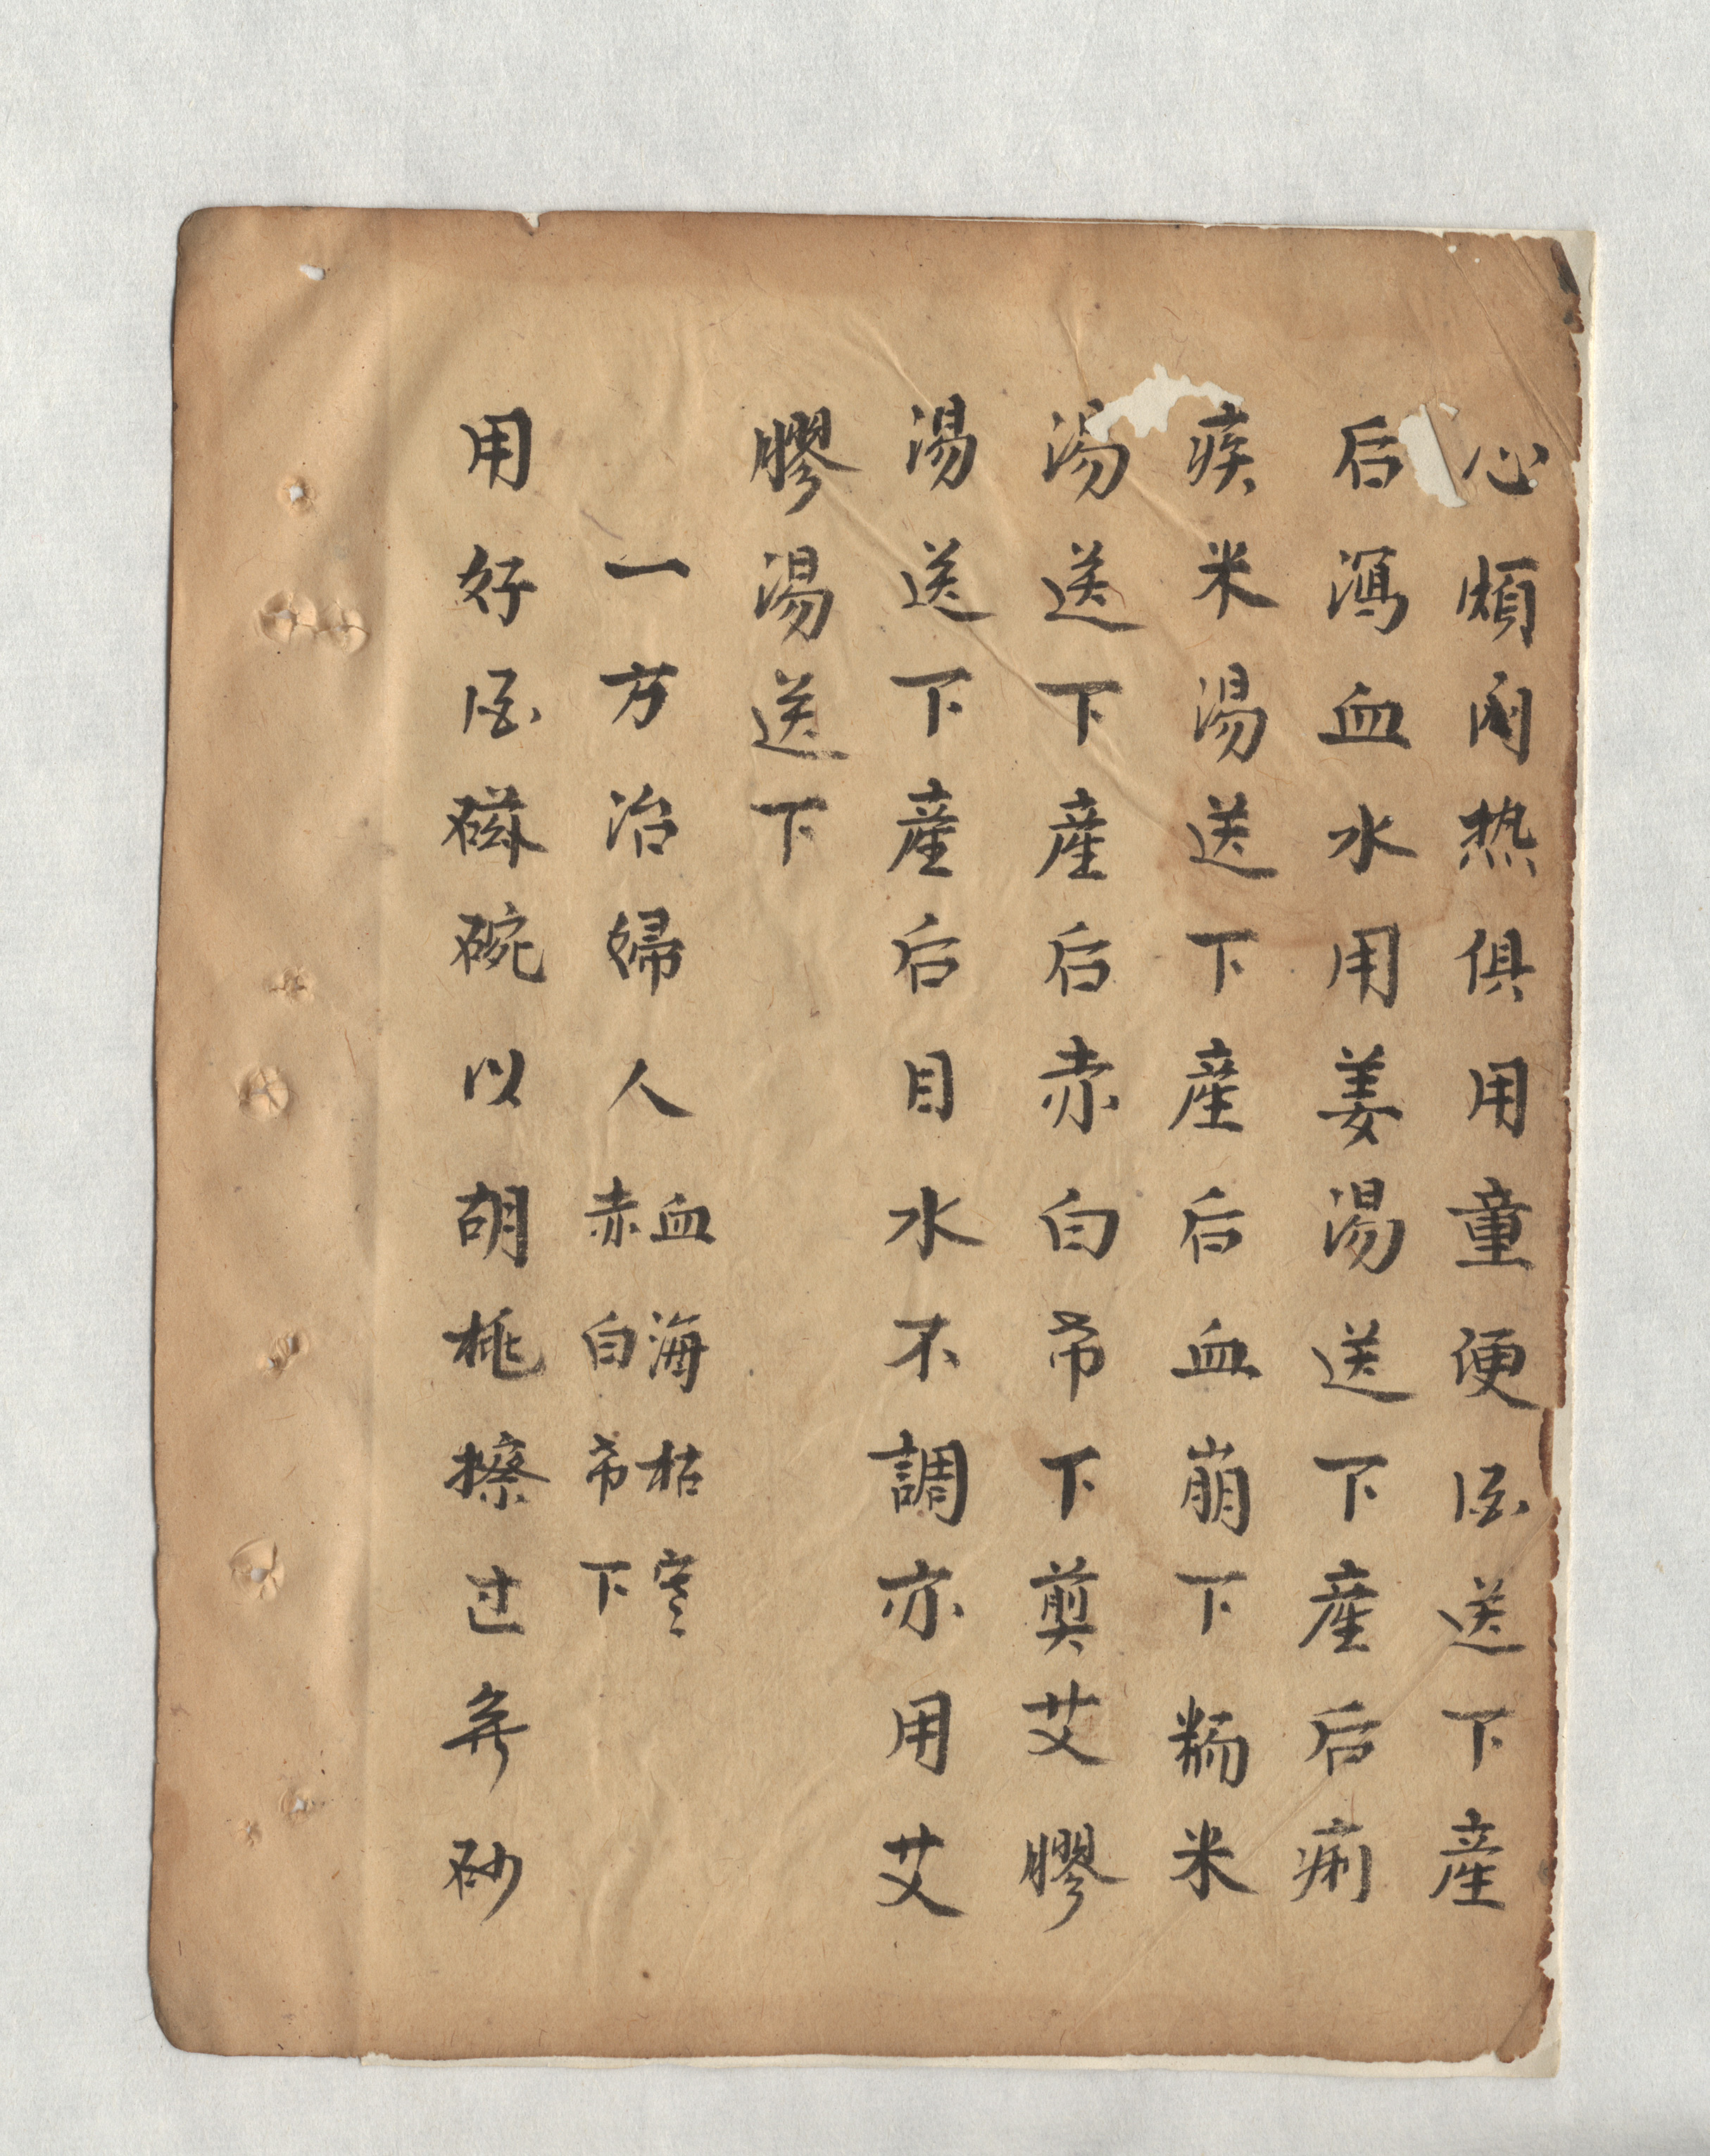 心煩闷热俱用童便酒送下産
后瀉血水用姜湯送下産后痢
疾米湯送下産后血崩下糯米
湯送下産后赤白帯下煎艾膠
湯送下産后月水不調亦用艾
膠湯送下
一方治婦人血海枯寒赤白帯下
用好酒磁碗以胡桃擦过辛砂